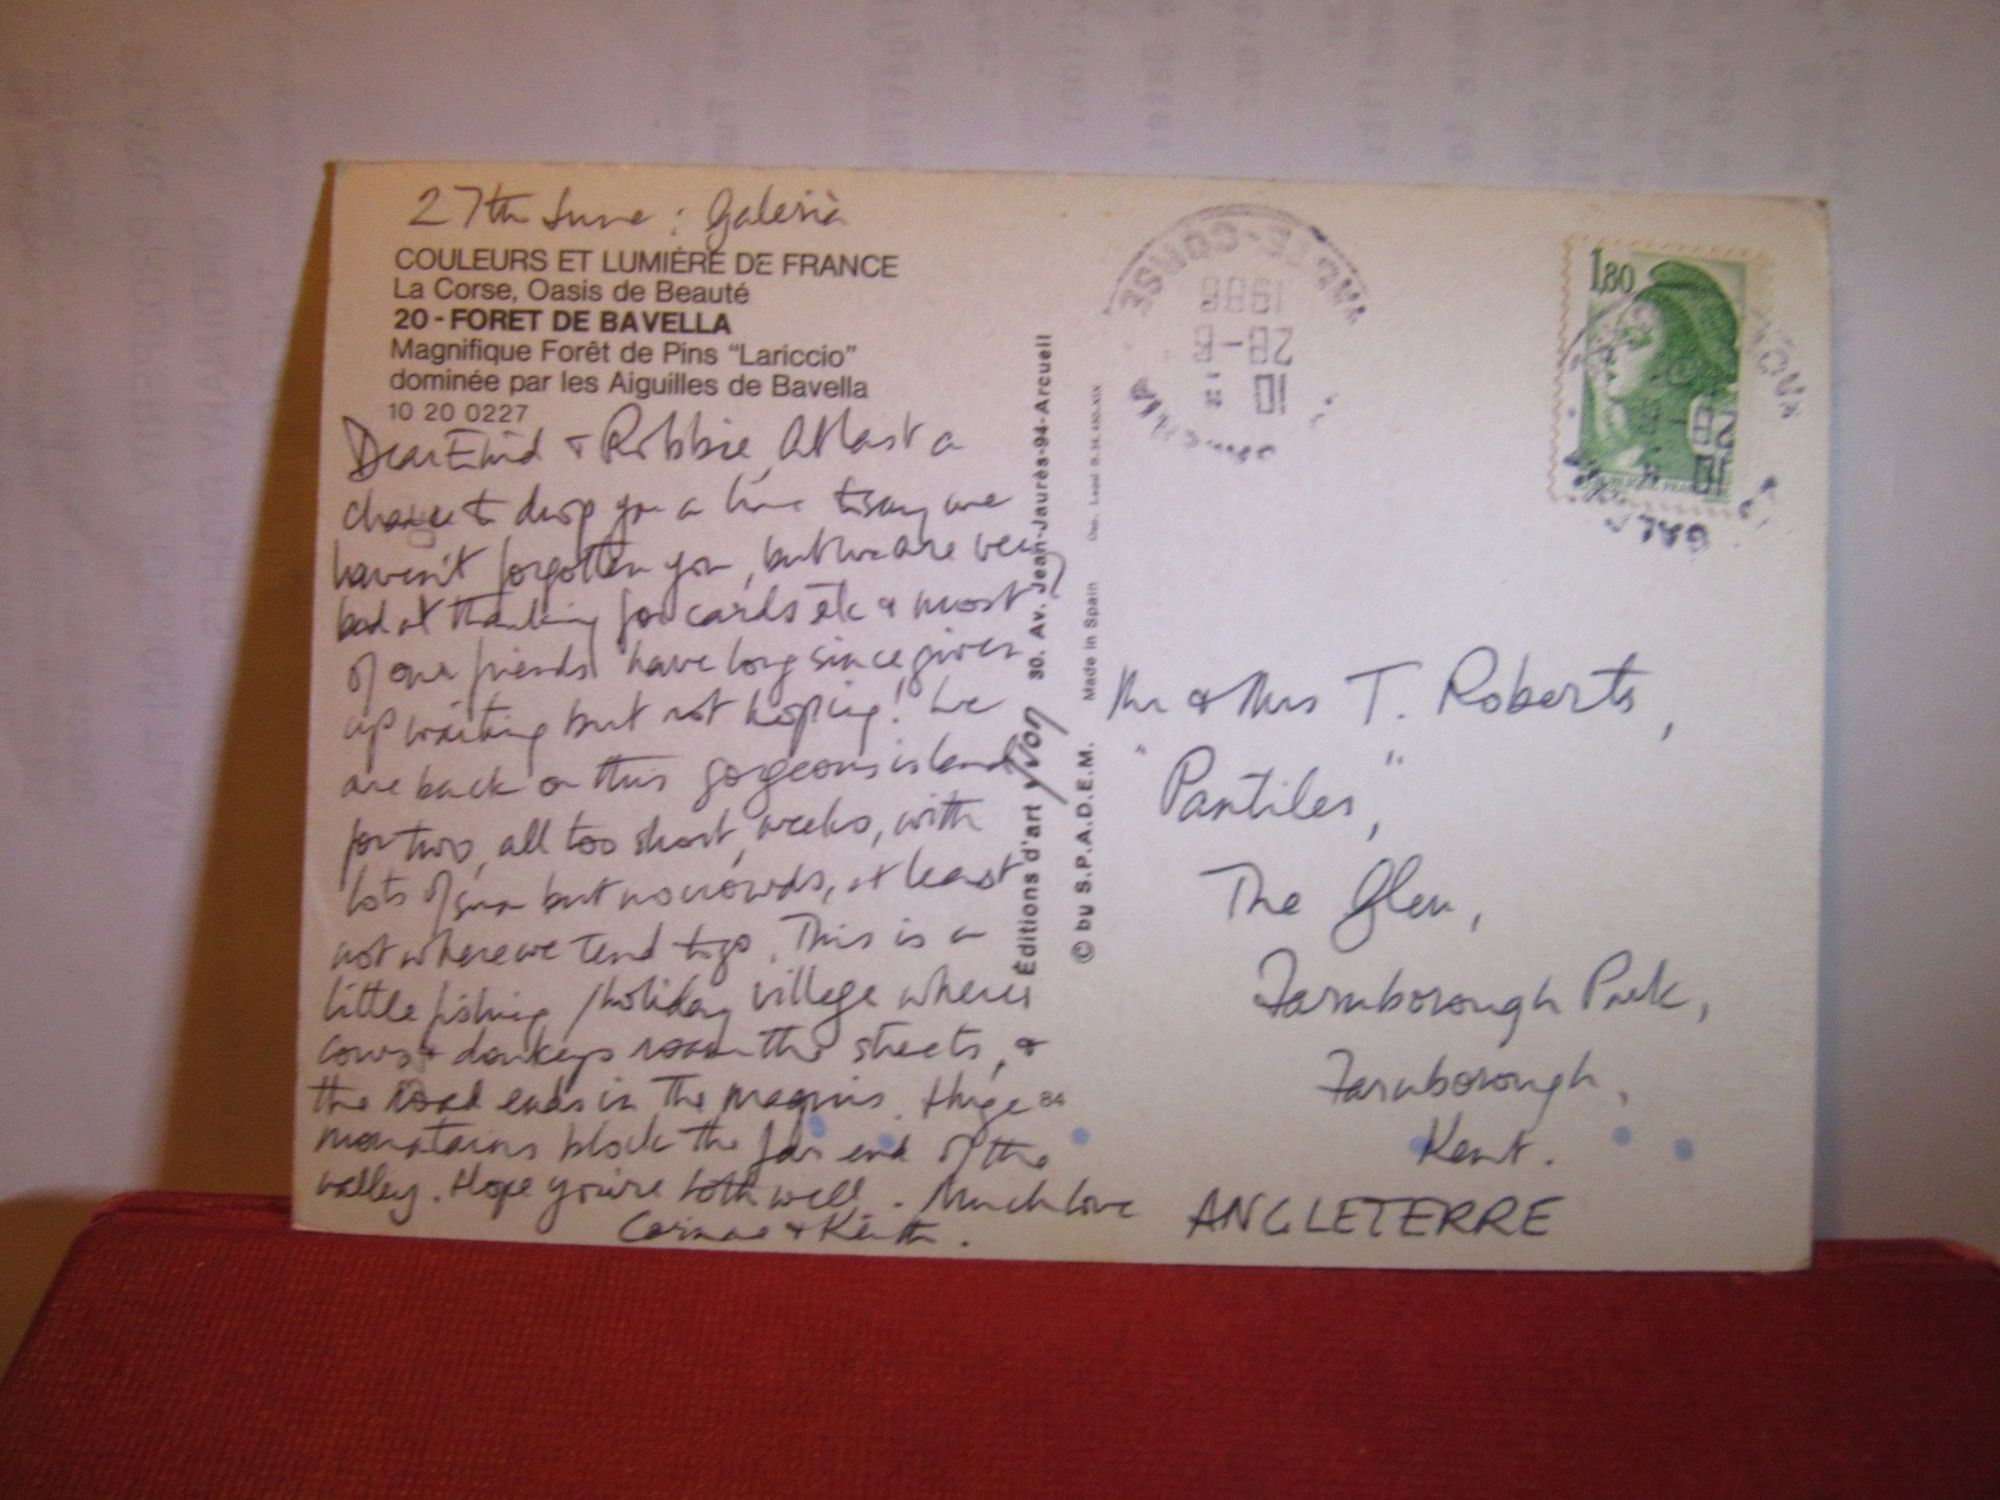 27th June : Galeria
COULEURS ET LUMIÈRE DE FRANCE
La Corse, Oasis de Beauté
20 - FORET DE BAVELLA
Magnifique Forêt de Pins “Lariccio”
dominée par les Aiguilles de Bavella
10 20 0227
Dear Enid & Robbie, At last a
chance to drop you a line to say we
haven't forgotten you, but we are very
bad at thanking for cards etc & most
of our friends have long since given
up waiting but not hoping! We
are back on this gorgeous island
for two, all too short, weeks, with
lots of sun but no crowds, at least
not where we tend to go. This is a
little fishing / holiday village where
cows & donkeys roam the streets, &
the road ends in the maquis. Huge
mountains block the far end of the
valley. Hope you're both well. Much love
Corinne & Keith.
84
Éditions d'art YVON 30. Av. Jean-Jaurès-94-Arcueil
© by S.P.A.D.E.M. Made in Spain Dep. Legal B.
HAUTE-CORSE
1986
28-6
10
1,80
Mr & Mrs T. Roberts,
"Pantiles,"
The Glen,
Farnborough Park,
Farnborough,
Kent.
ANGLETERRE